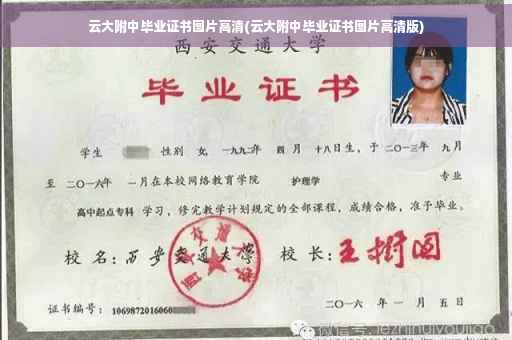 云大附中毕业证书图片高清(云大附中毕业证书图片高清版)
西安交通大学
毕业证书
学生 性别 女, 一九九二年 四 月 十八日生, 于 二〇一三年 九月
至 二〇一六年 一月在本校网络教育学院 护理学 专业
高中起点专科 学习, 修完教学计划规定的全部课程, 成绩合格, 准予毕业。
校 名: 西安交通大学 校 长: 王树国
证书编号: 1069872016060
二〇一六 年 一 月 五 日
微信号: jezhihuiyoujiao